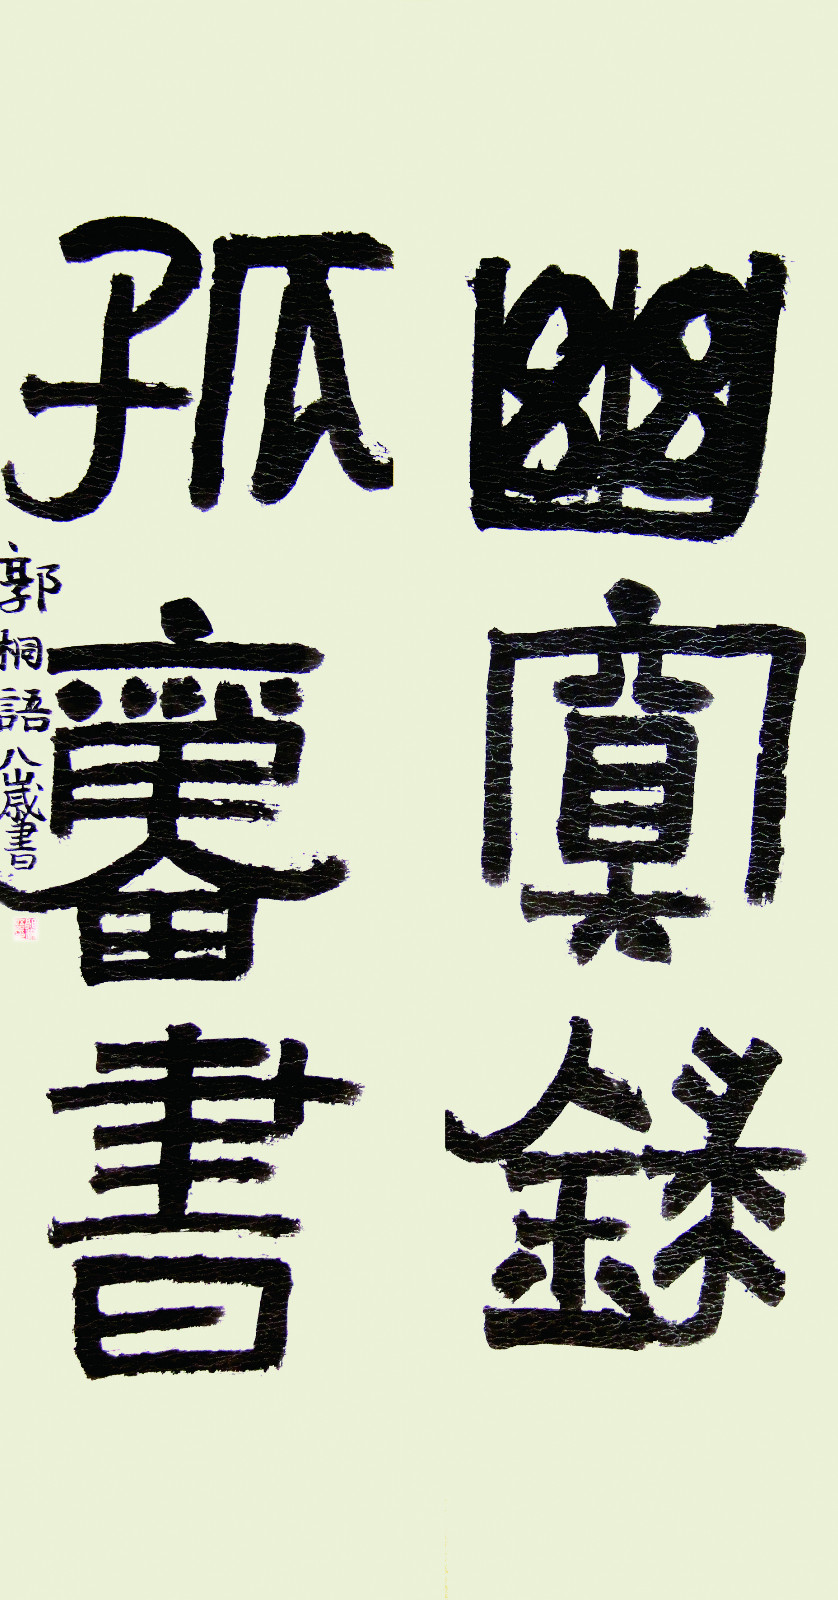 幽錄
孤書
郭桐語八歲書